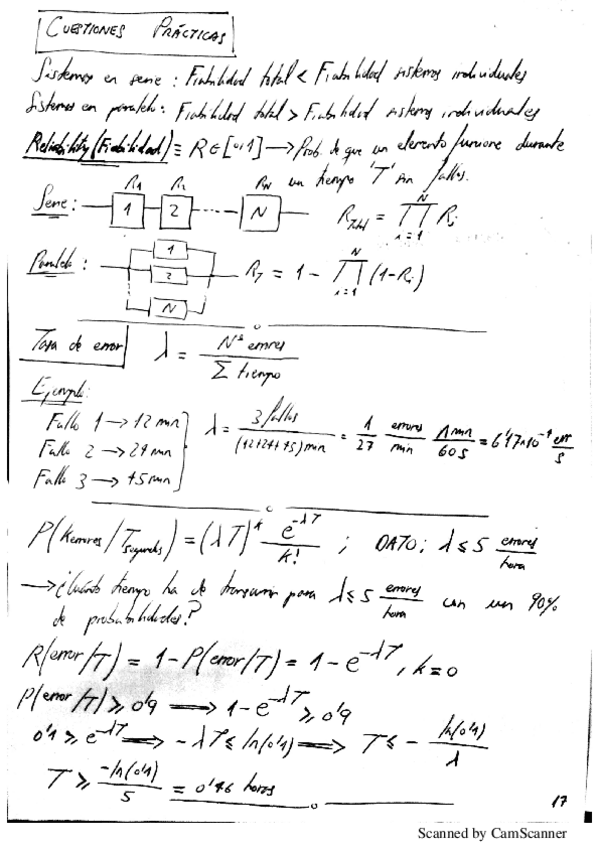 CUESTIONES PRÁCTICAS
Sistemas en serie : Fiabilidad total < Fiabilidad sistemas individuales
Sistemas en paralelo : Fiabilidad total > Fiabilidad sistemas individuales
Reliability (Fiabilidad) ≡ R ∈ [0,1] → Prob. de que un elemento funcione durante
un tiempo 'T' sin fallos.
Serie : R1 R2 RN
1 2 ---- N
R_Total = ∏_{i=1}^{N} R_i
Paralelo : 1 2 N
R_T = 1 - ∏_{i=1}^{N} (1-R_i)
Tasa de error λ = Nº errores / Σ tiempo
Ejemplo:
Fallo 1 → 12 min
Fallo 2 → 24 min
Fallo 3 → 45 min
λ = 3 fallos / (12+24+45) min = 1/27 errores/min 1 min/60 s = 6'17×10^-4 err/s
P(k errores / T segundos) = (λT)^k e^{-λT} / k! ; DATO: λ ≤ 5 errores/hora
→ ¿Cuánto tiempo ha de transcurrir para λ ≤ 5 errores/hora con un 90%
de probabilidades?
R(error/T) = 1 - P(error/T) = 1 - e^{-λT}, k=0
P(error/T) ≥ 0'9 ⟹ 1 - e^{-λT} ≥ 0'9
0'1 ≥ e^{-λT} ⟹ -λT ≤ ln(0'1) ⟹ T ≤ - ln(0'1)/λ
T ≥ -ln(0'1)/5 = 0'46 horas
17
Scanned by CamScanner